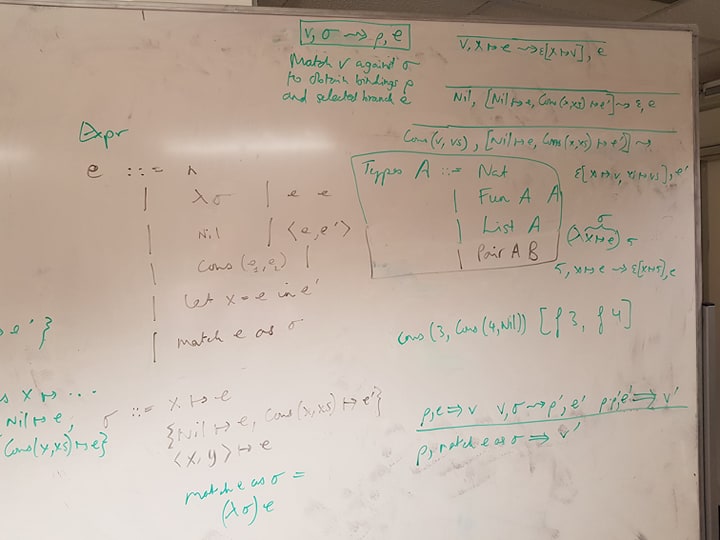 v, σ ⇝ ρ, e
Match v against σ
to obtain bindings ρ
and selected branch e
v, x ↦ e ⇝ ε[x ↦ v], e
Nil, [Nil ↦ e, Cons(x,xs) ↦ e'] ⇝ ε, e
Cons(v, vs), [Nil ↦ e, Cons(x,xs) ↦ e'] ⇝
ε[x ↦ v, xs ↦ vs], e'
Expr
e ::= n
| λσ | e e
| Nil | ⟨e, e'⟩
| Cons(e₁, e₂) |
| let x = e in e'
| match e as σ
Types A ::= Nat
| Fun A A
| List A
| Pair A B
σ
(λ x ↦ e) 5
5, x ↦ e ⇝ ε[x ↦ 5], e
Cons(3, Cons(4, Nil)) [f 3, f 4]
e' }
s x ↦ ...
Nil ↦ e,
Cons(x,xs) ↦ e}
σ ::= x ↦ e
{Nil ↦ e, Cons(x,xs) ↦ e'}
⟨x, y⟩ ↦ e
match e as σ =
(λσ) e
ρ, e ⇒ v v, σ ⇝ ρ', e' ρ·ρ', e' ⇒ v'
ρ, match e as σ ⇒ v'